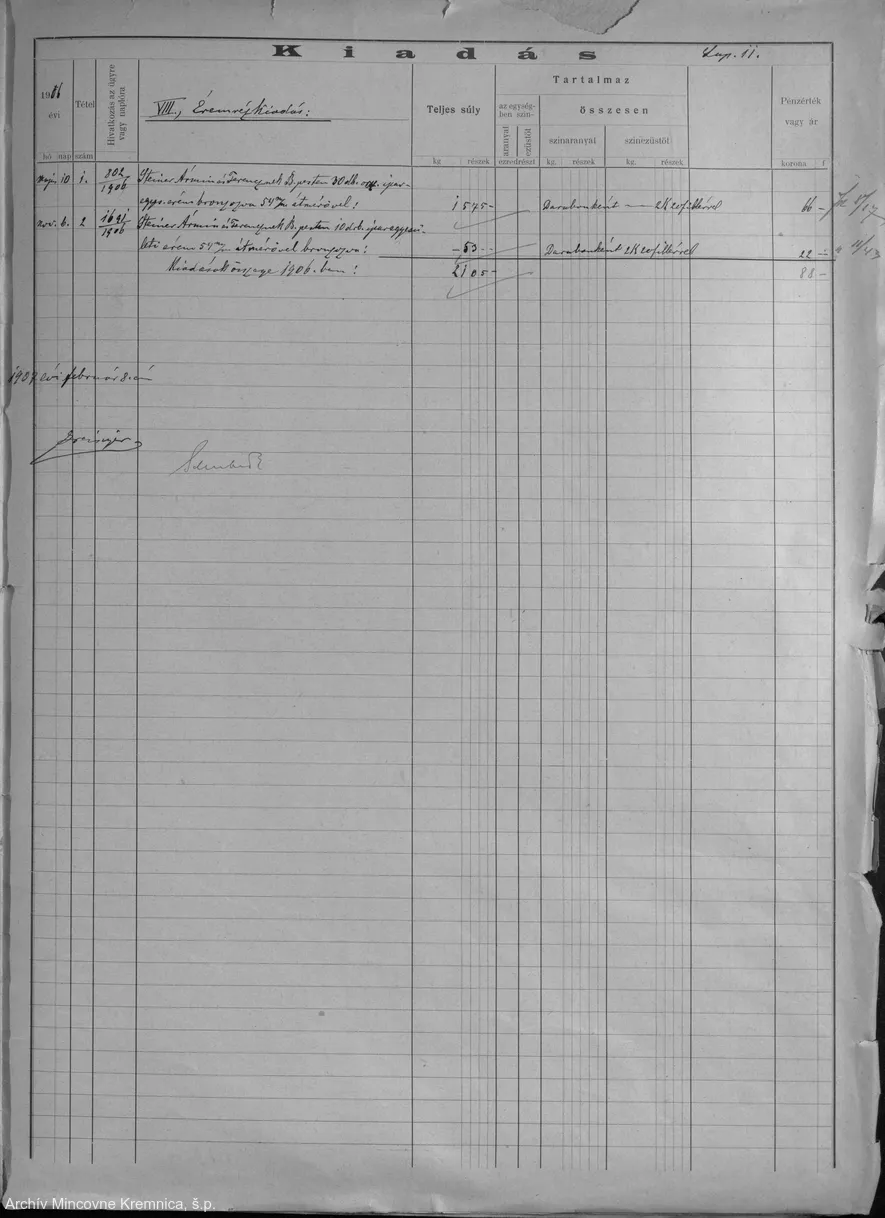 Kiadás
Lap. 11.
1906
évi
hó nap
Tétel
szám
Hivatkozás az ügyre
vagy naplóra
VIII., Éremvéj Kiadás:
Teljes súly
kg részek
Tartalmaz
az egység-
ben szín-
aranyat
ezüstöt
ezredrészt
összesen
színaranyat
színezüstöt
kg. részek kg. részek
Pénzérték
vagy ár
korona f
Máj. 10 1. 802/1906 Steiner Ármin és Ferencznek B. pesten 30 db. ipar-
egyes. érem bronzozva 54 m/m átmérővel! 1 575 - Darabonként — 2K 20 fillérrel 66 -
nov. 6. 2 1691/1906 Steiner Ármin és Ferencznek B. pesten 10 drb. iparegyesü-
leti érem 54 m/m átmérővel bronzozva: - 53 - - Darabonként 2K 20 fillérrel 22 -
Kiadások összege 1906. ban! 2 105 - 88 -
1907 évi február 8. án
Archív Mincovne Kremnica, š.p.